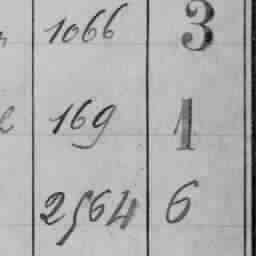 1066 3
169 1
2564 6